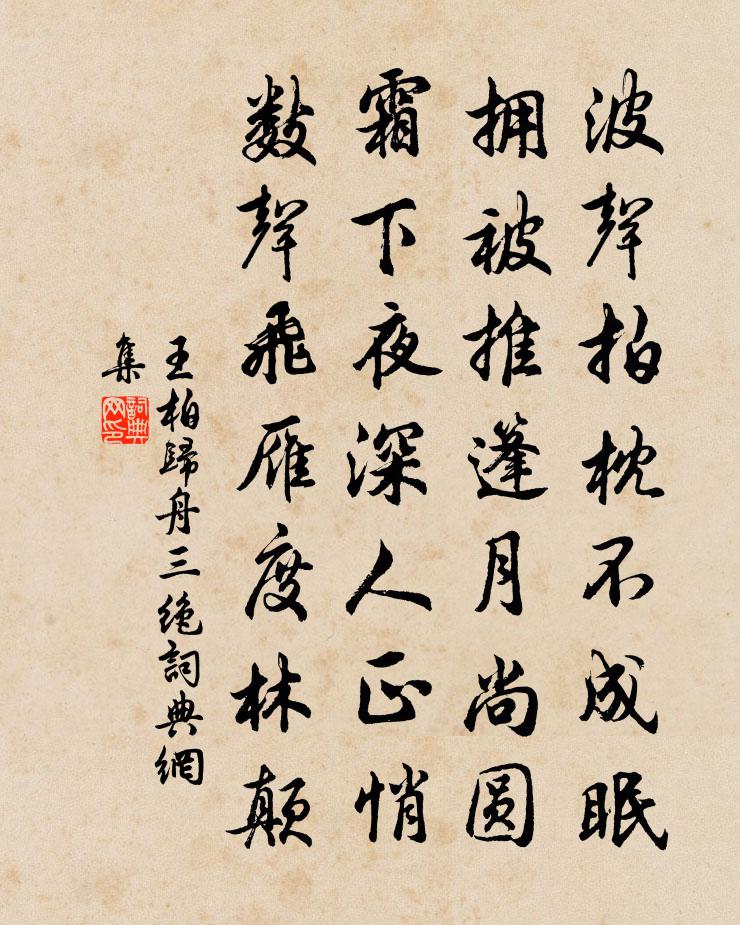 波聲拍枕不成眠
拥被推蓬月尚圆
霜下夜深人正悄
数聲飛雁度林颠
王柏歸舟三绝詞典網
集
詞典
网印